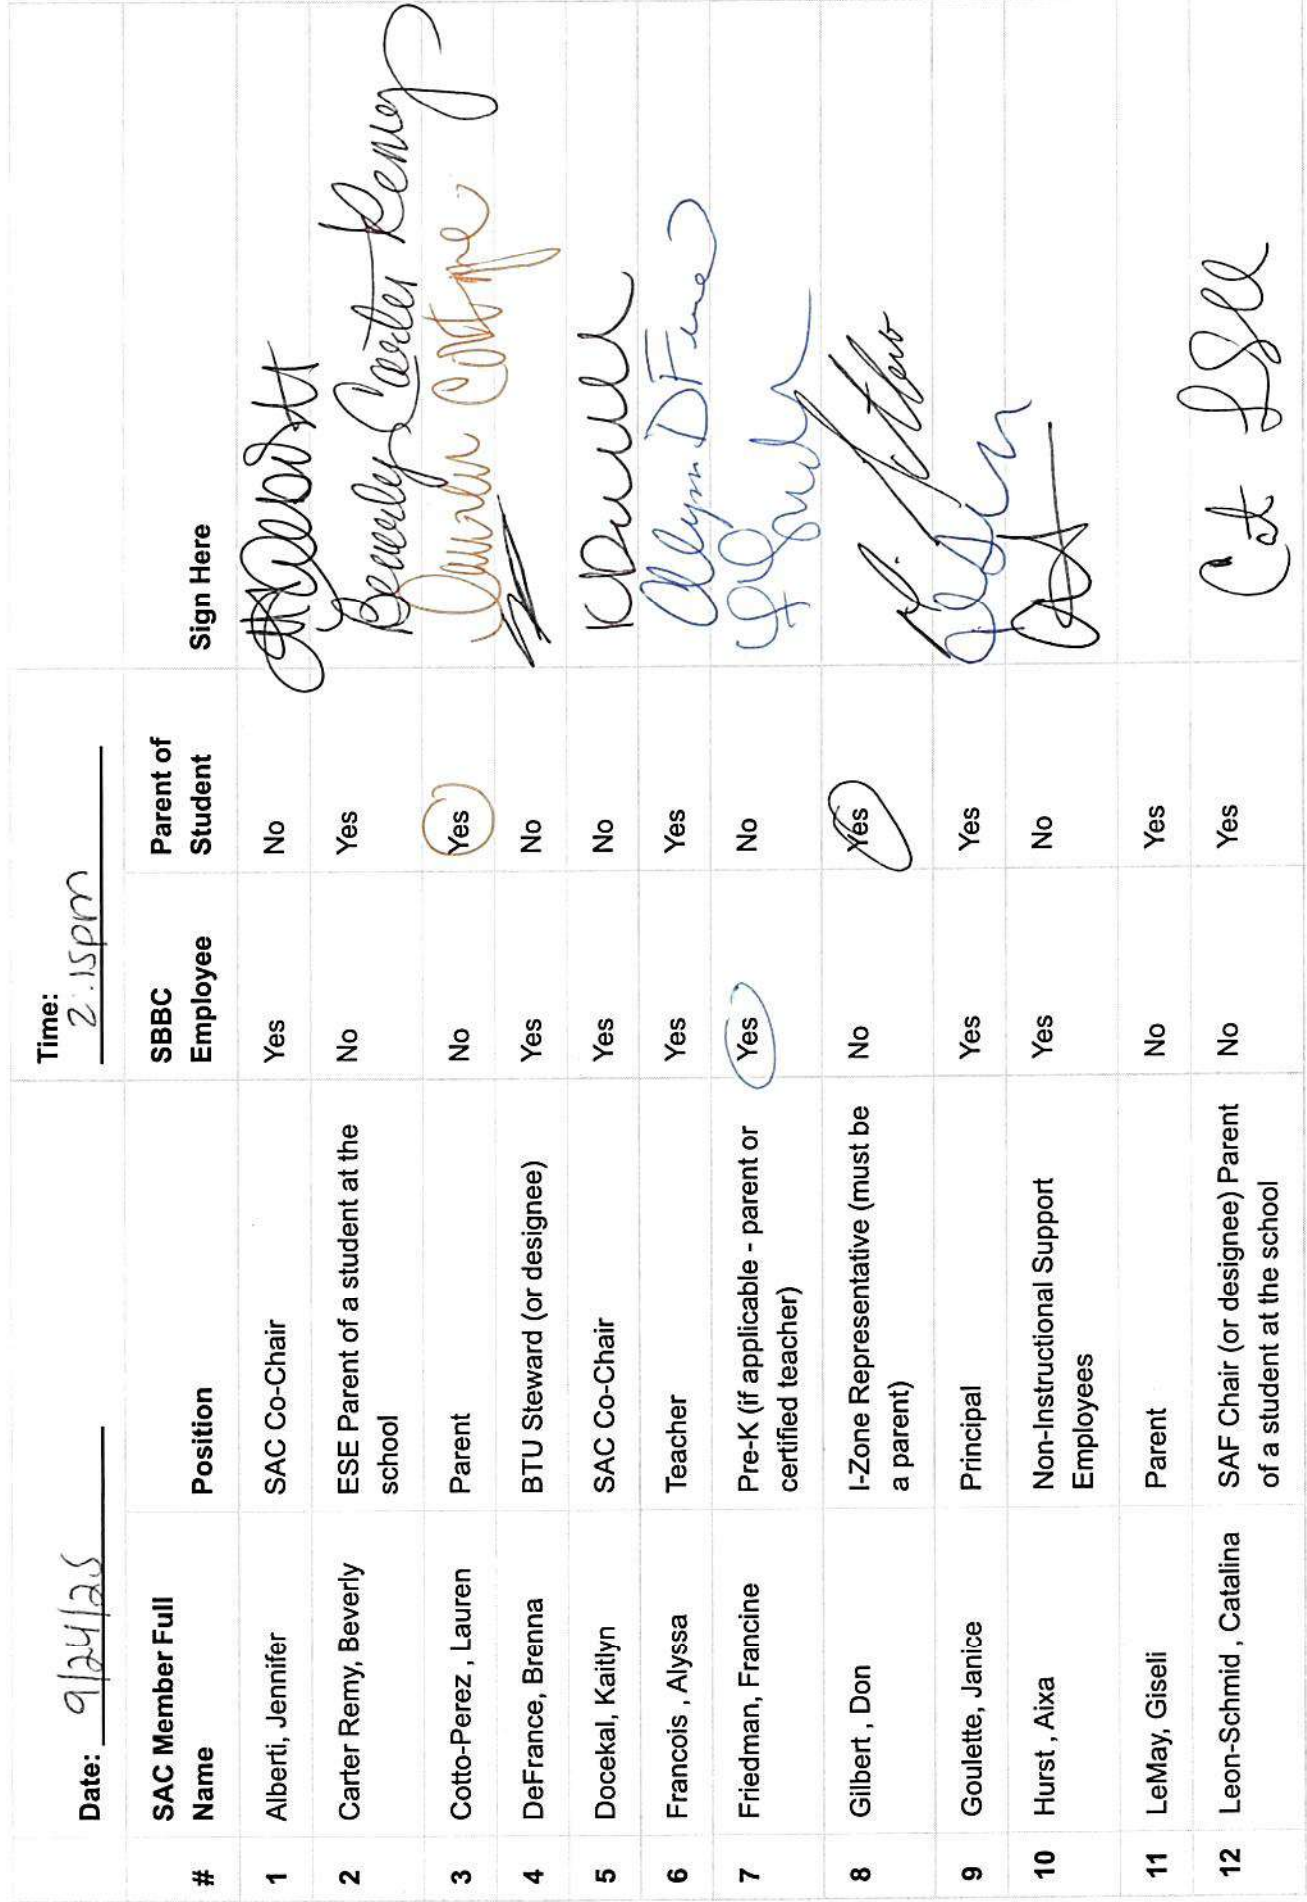 Date: 9/24/25 Time: 2:15pm
# SAC Member Full Name Position SBBC Employee Parent of Student Sign Here
1 Alberti, Jennifer SAC Co-Chair Yes No
2 Carter Remy, Beverly ESE Parent of a student at the school No Yes Beverly Carter Remy
3 Cotto-Perez , Lauren Parent No Yes Lauren Cotto
4 DeFrance, Brenna BTU Steward (or designee) Yes No
5 Docekal, Kaitlyn SAC Co-Chair Yes No
6 Francois , Alyssa Teacher Yes Yes
7 Friedman, Francine Pre-K (if applicable - parent or certified teacher) Yes No
8 Gilbert , Don I-Zone Representative (must be a parent) No Yes
9 Goulette, Janice Principal Yes Yes
10 Hurst , Aixa Non-Instructional Support Employees Yes No
11 LeMay, Giseli Parent No Yes
12 Leon-Schmid , Catalina SAF Chair (or designee) Parent of a student at the school No Yes Cat